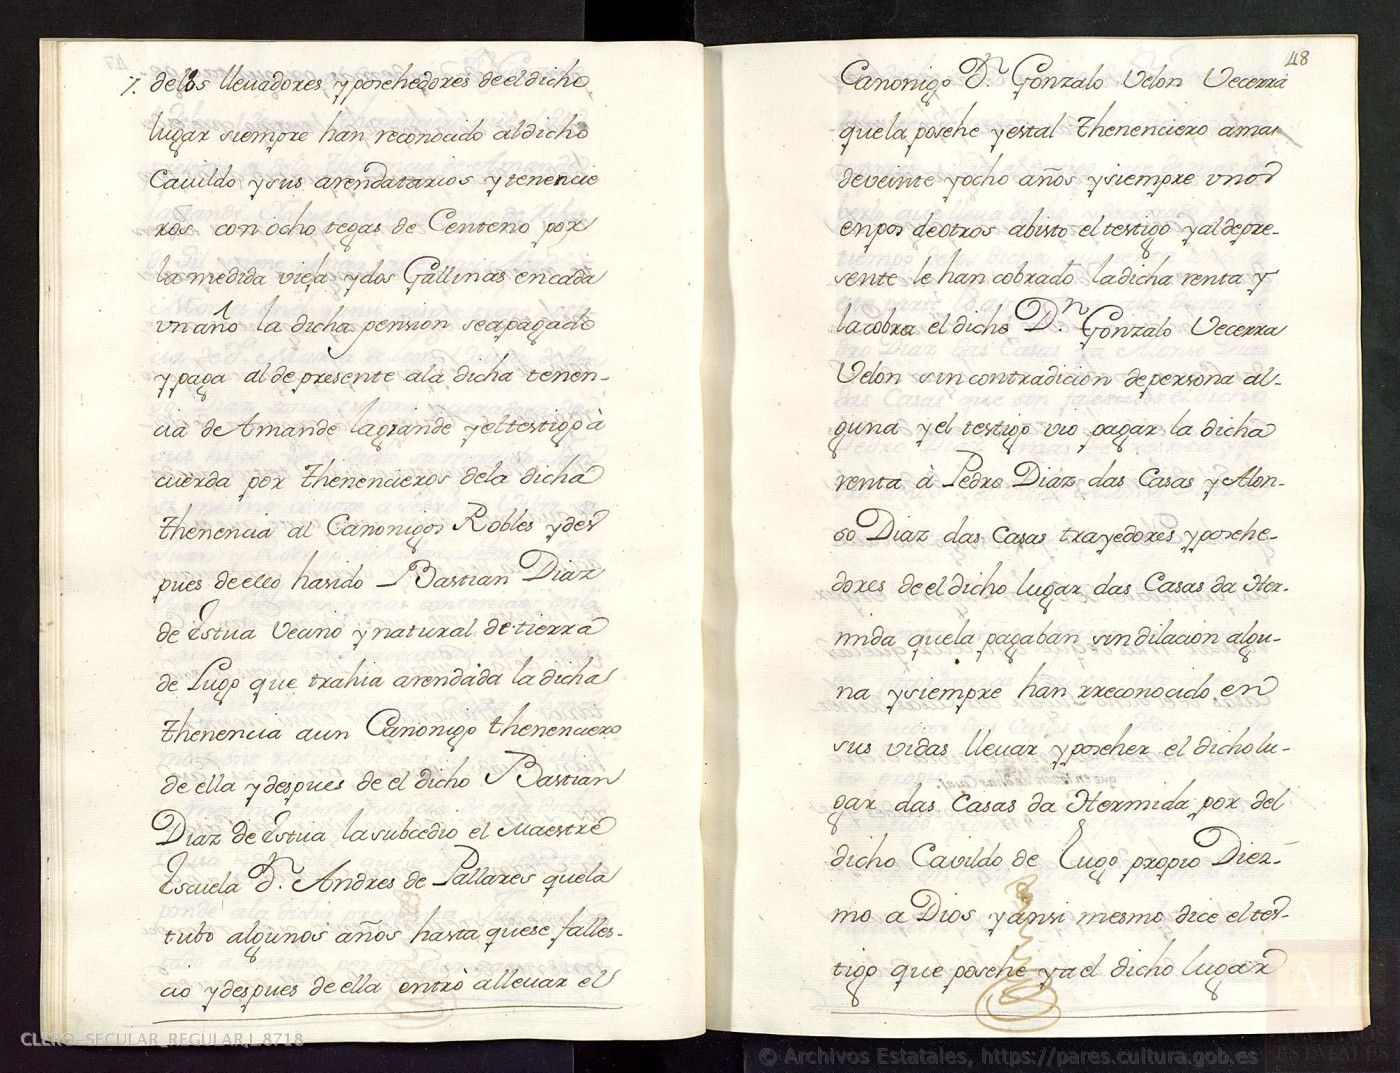 7. de los lleuadores y posehedores de el dicho
lugar siempre han reconocido al dicho
Cauildo y sus arendatarios y tenencie
ros con ocho tegas de Centeno por
la medida vieja y dos Gallinas en cada
vn año la dicha pension se a pagado
y paga al de presente a la dicha tenen-
cia de Amande la grande y el testigo à
cuerda por thenencieros dela dicha
thenencia al Canonigos Robles y des
pues de ello ha sido Bastian Diaz
de Estua Vecino y natural de tierra
de Lugo que trahia arendada la dicha
thenencia a un Canonigo thenenciero
de ella y despues de el dicho Bastian
Diaz de Estua la subcedio el Maestre
Escuela Dn. Andres de Pallares quela
tubo algunos años hasta quese falles-
cio y despues de ella entrò a lleuar el
48
Canonigo Dn. Gonzalo Velon Vecerra
quela posehe y estal thenenciero a mas
de veinte y ocho años y siempre vnos
en pos de otros a bisto el testigo y al de pre-
sente le han cobrado la dicha renta y
la cobra el dicho Dn. Gonzalo Vecerra
Velon sin contradicion de persona al-
guna y el testigo vio pagar la dicha
renta à Pedro Diaz das Casas y Alon-
so Diaz das Casas trayedores y posehe-
dores de el dicho lugar das Casas da Her-
mida quela pagaban sin dilacion algu-
na y siempre han rreconocido en
sus vidas lleuar y poseher el dicho lu-
gar das Casas da Hermida por del
dicho Cavildo de Lugo propio Diez-
mo a Dios y ansi mesmo dice el tes-
tigo que posehe ya el dicho lugar
CLERO-SECULAR_REGULAR,L_8718
© Archivos Estatales, https://pares.cultura.gob.es
ARCHIVOS
ESTATALES